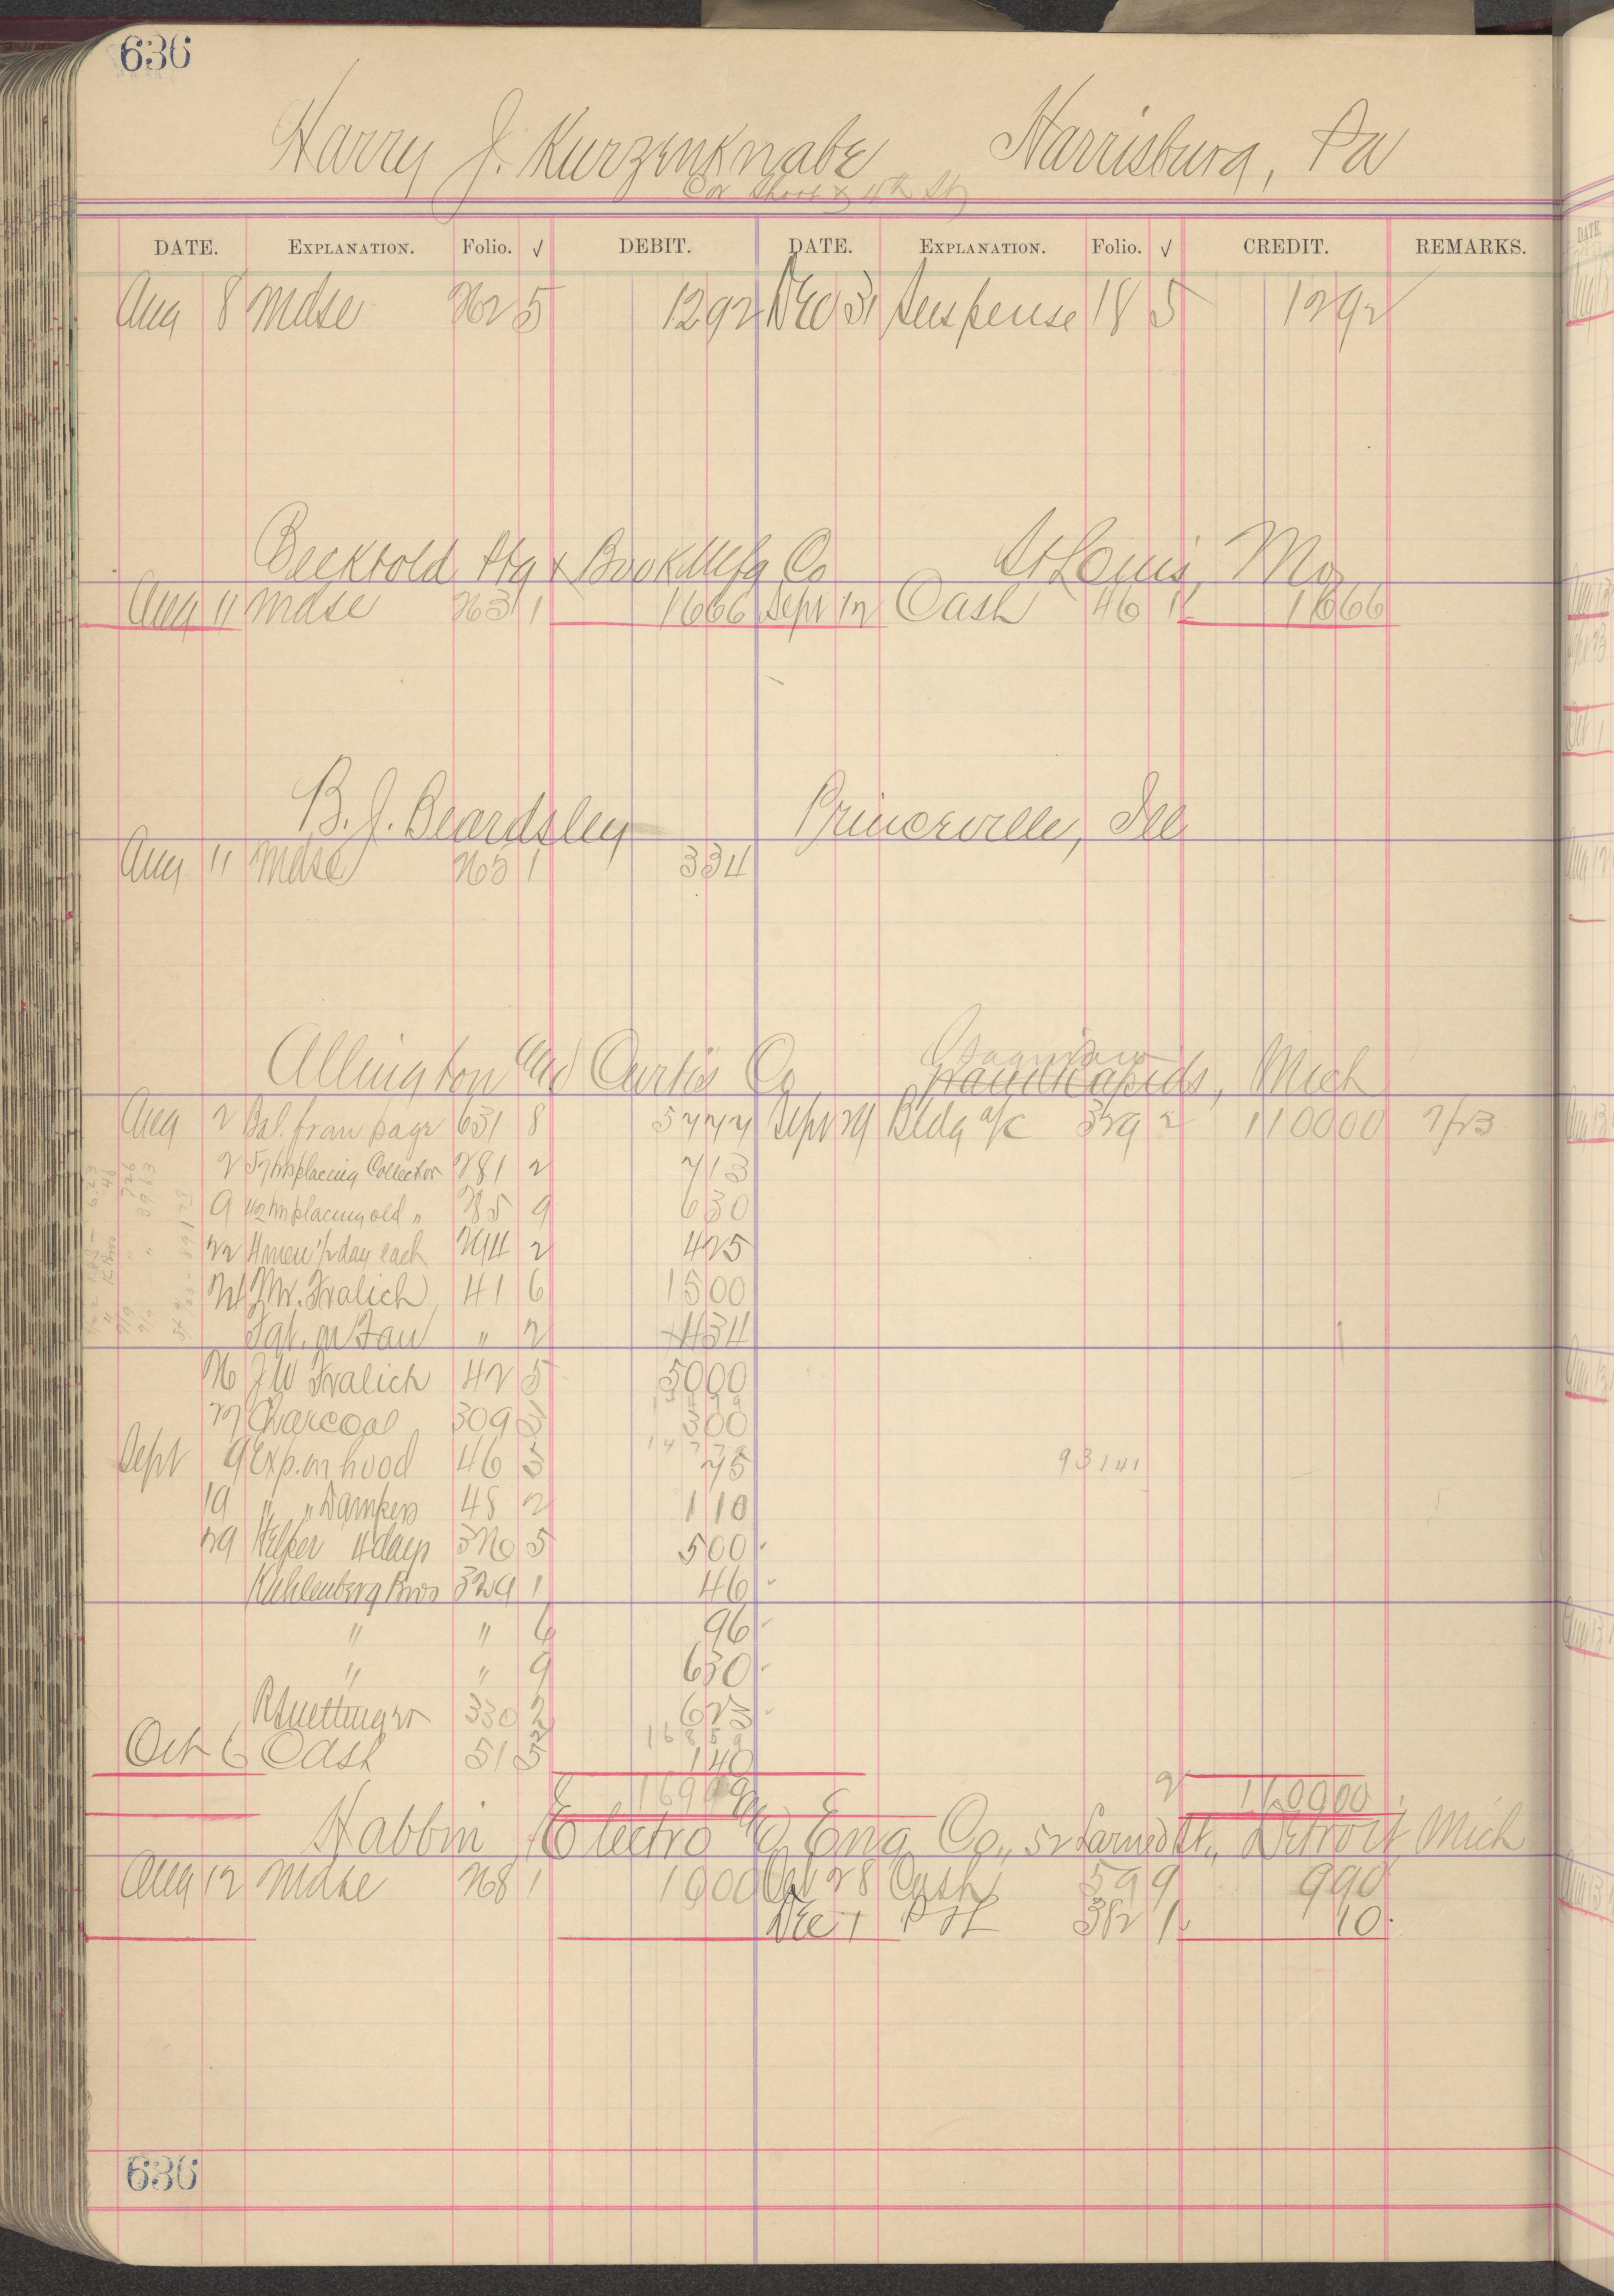 636
Harry J. Kurzenknabe Harrisburg, Pa
Cor Short & 4th St
DATE. EXPLANATION. Folio. √ DEBIT. DATE. EXPLANATION. Folio. √ CREDIT. REMARKS.
Aug 8 Mdse 262 5 1292 Dec 31 Suspense 18 5 1292
Becktold Ptg & Book Mfg Co St Louis, Mo
Aug 11 Mdse 263 1 1666 Sept 12 Cash 46 1 1666
B. J. Beardsley Princeville, Ill
Aug 11 Mdse 263 1 334
Saginaw
Allington and Curtis Co Grand Rapids, Mich
Aug 2 Bal. from page 631 8 5777 Sept 29 Bldg a/c 329 2 110000 9/23
2 placing Collector 281 2 713
9 placing old " 285 9 630
22 4 men 1/2 day each 294 2 425
24 J.W. Fralich 41 6 1500
Fgt. on Fan " 2 434
26 J W Fralich 42 5 5000
27 Charcoal 309 3 300
Sept 9 Exp. on hood 46 3 75
93141
19 " " Dampers 48 2 110
29 Helper 4 days 320 5 500
Kuhlenberg Bros 329 1 46
" " 6 96
" " 9 630
330 2 623
1685
Oct 6 Cash 51 5 140
16999 2 110000
Habbin Electro and Eng Co., 52 Larned St., Detroit Mich
Aug 12 Mdse 268 1 1000 Oct 28 Cash 59 9 990
Dec 1 P & L 382 1 10
636